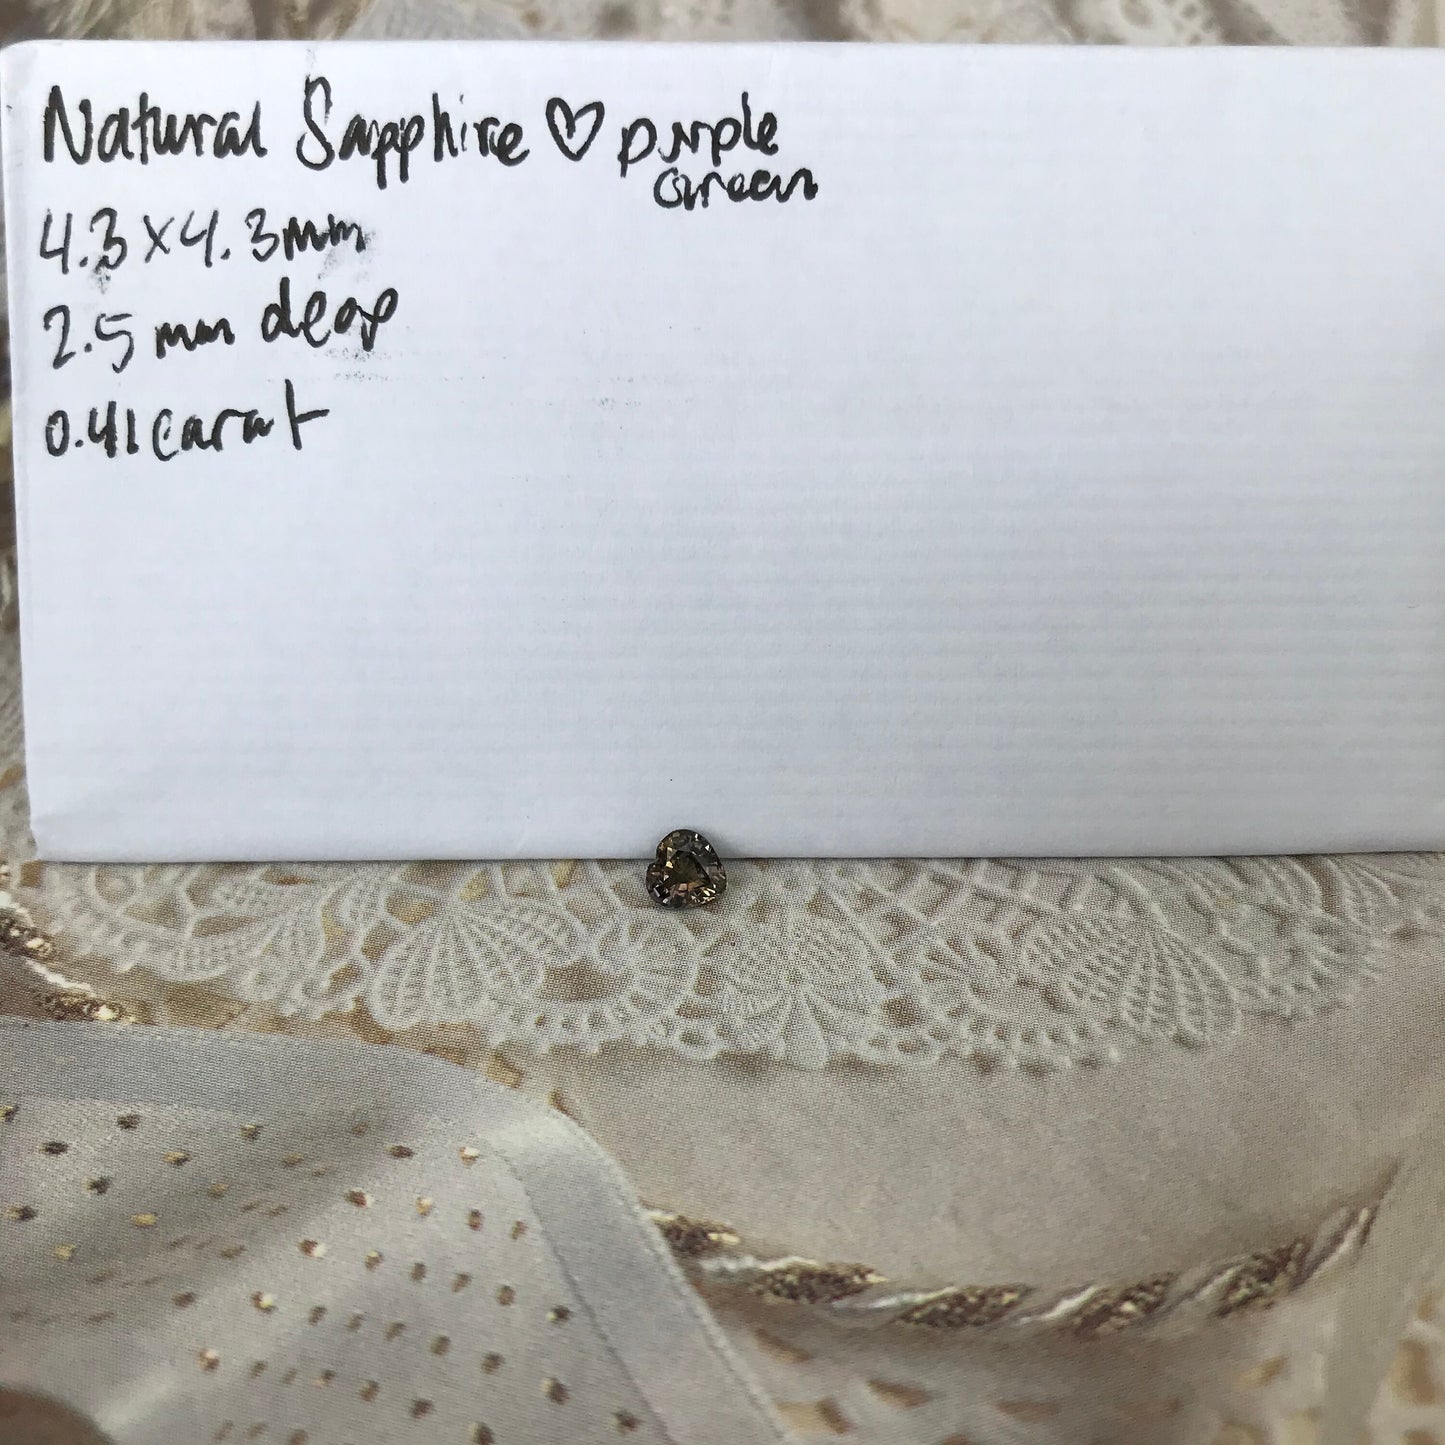 Natural Sapphire ♡ purple
Green
4.3x4.3mm
2.5 mm deep
0.41 carat